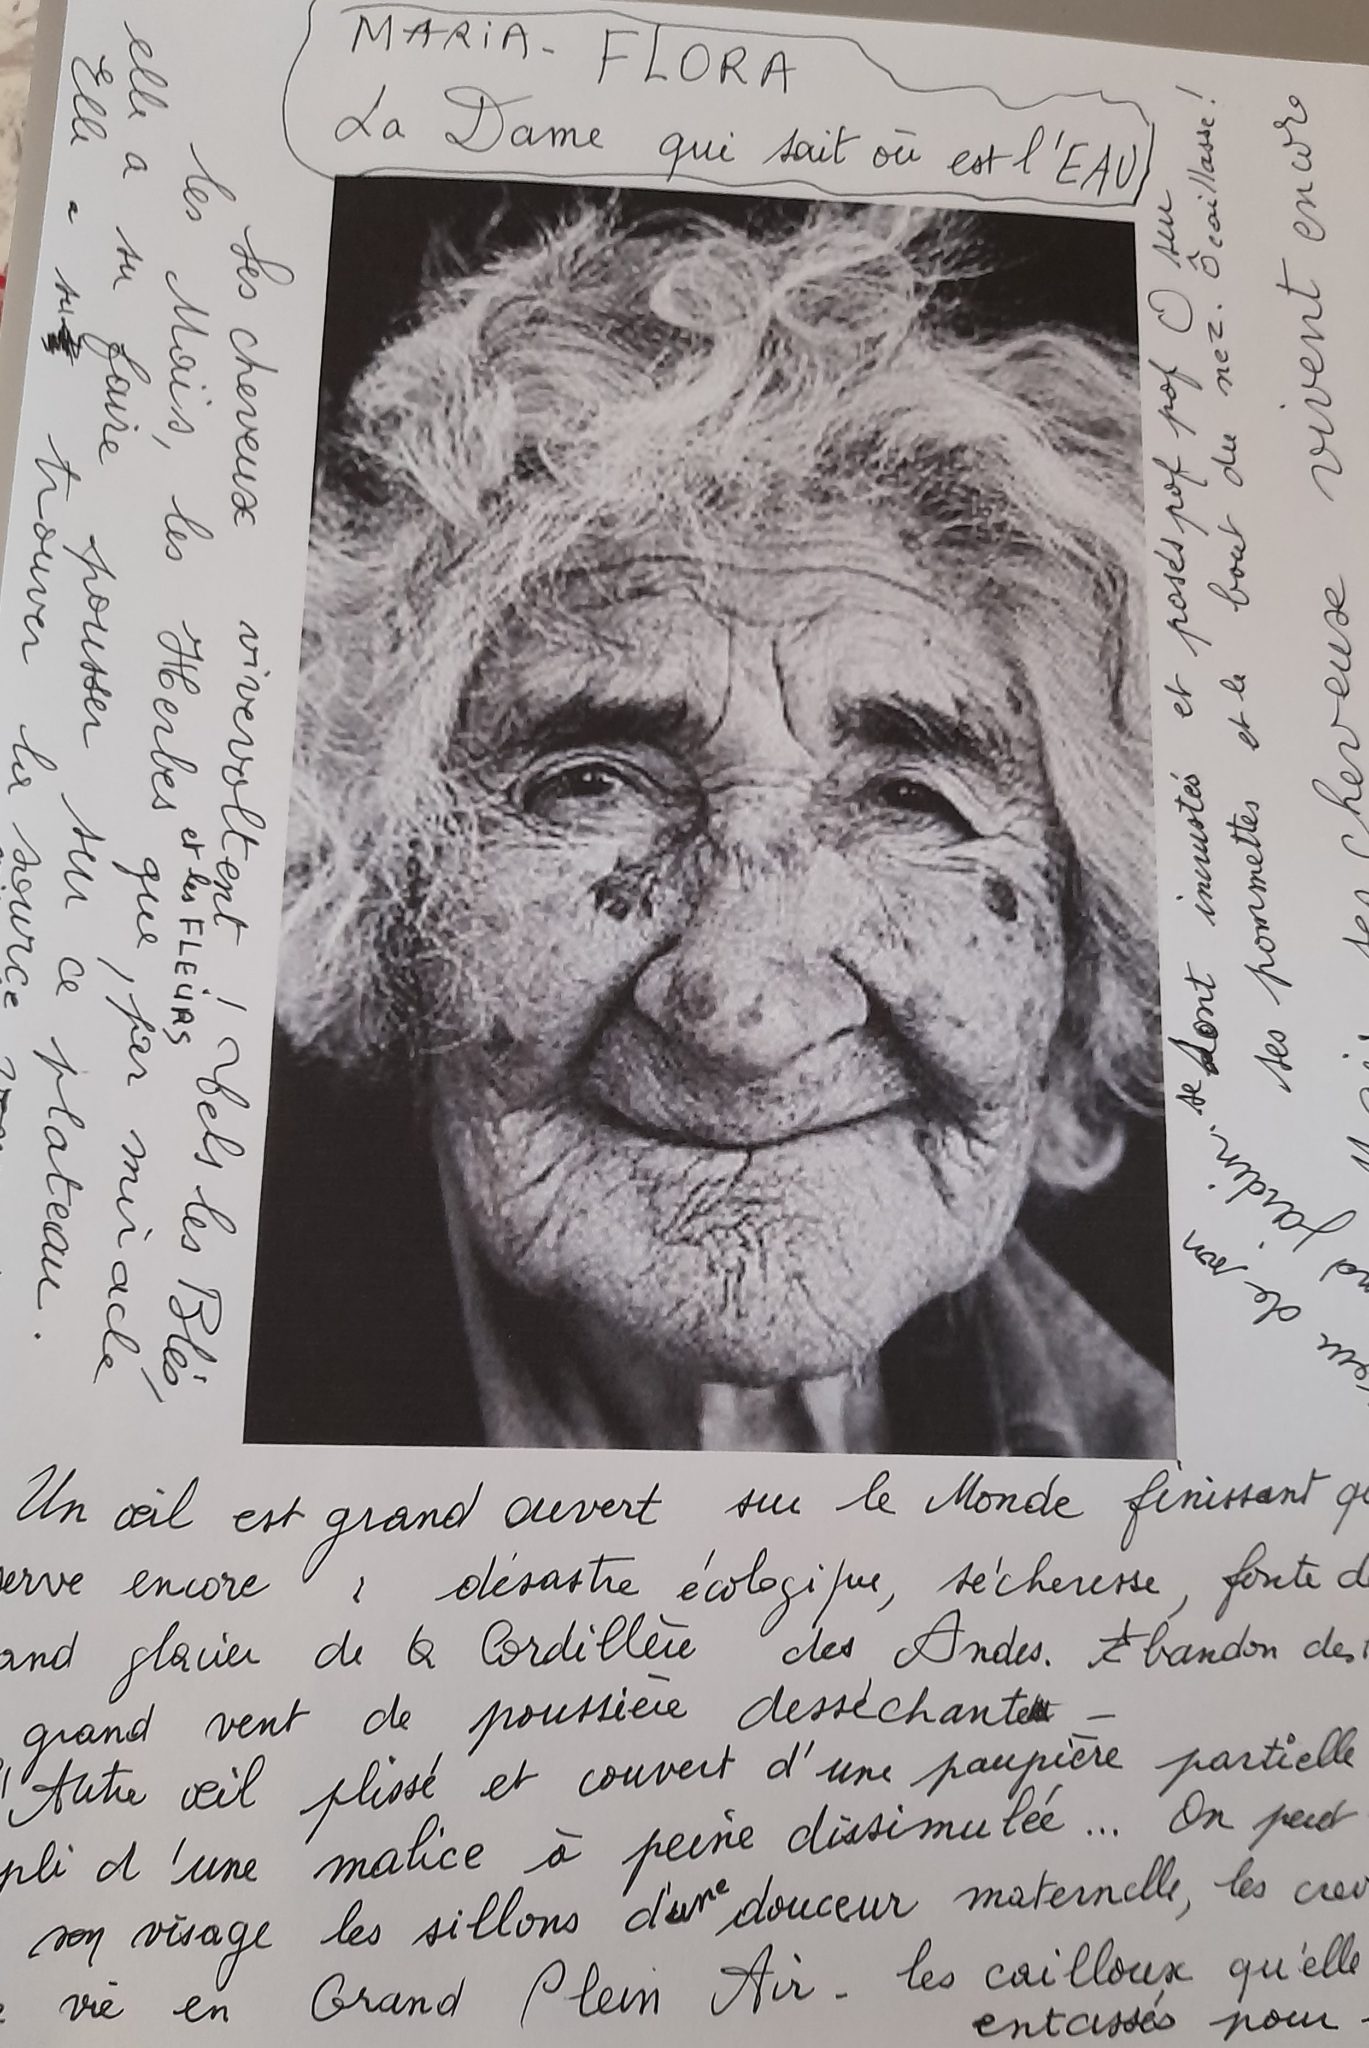 MARiA- FLORA
La Dame qui sait où est l'EAU
Un œil est grand ouvert sur le Monde finissant
serve encore : désastre écologique, sécheresse, fonte
and glacier de la Cordillère des Andes. Abandon
grand vent de poussière desséchante -
Autre œil plissé et couvert d'une paupière partielle
pli d'une malice à peine dissimulée... On peut
son visage les sillons d'une douceur maternelle, les
vie en Grand Plein Air - les cailloux qu'elle
entassés pour
de son
Jardin. se sont incrustés et posés pof pof pof Ô sur
ses pommettes et le bout du nez. Ô caillasse!
ses cheveux vivent encor
Ses cheveux vivevoltent! Tels les Blés,
les Maïs, les Herbes et les FLEURS que, par miracle
elle a su faire pousser sur ce plateau.
Elle a su trouver la source